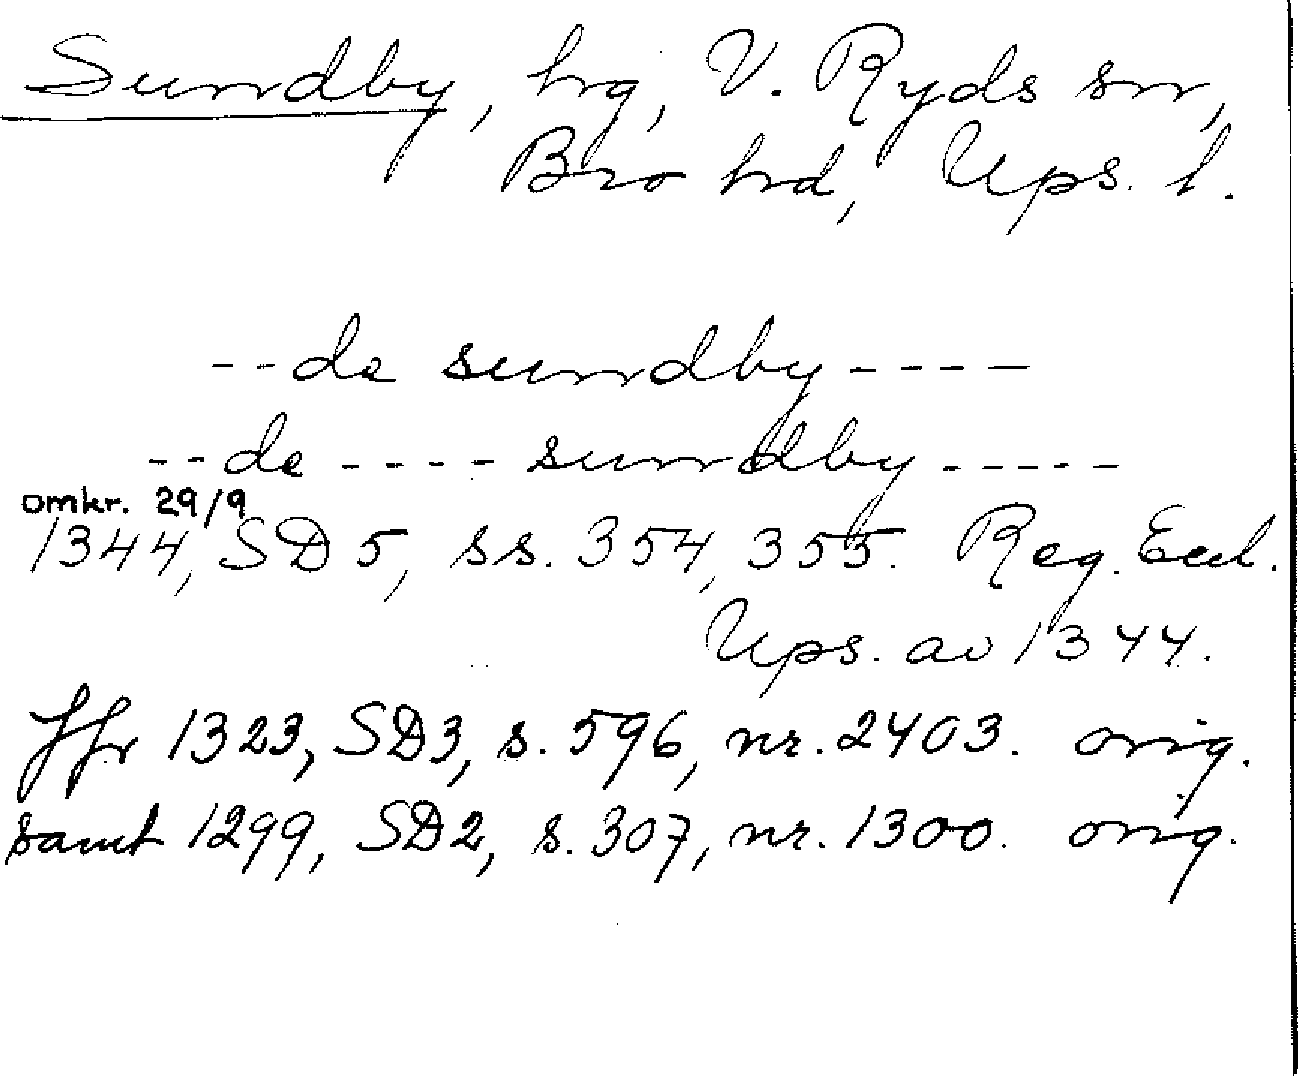 Sundby, hg, V. Ryds sn,
Bro hd, Ups. l.
--de sundby----
--de ---- sundby-----
omkr. 29/9
1344, SD 5, ss. 354, 355. Reg. Eccl.
Ups. av 1344.
Jfr 1323, SD3, s. 596, nr. 2403. orig.
samt 1299, SD2, s. 307, nr. 1300. orig.